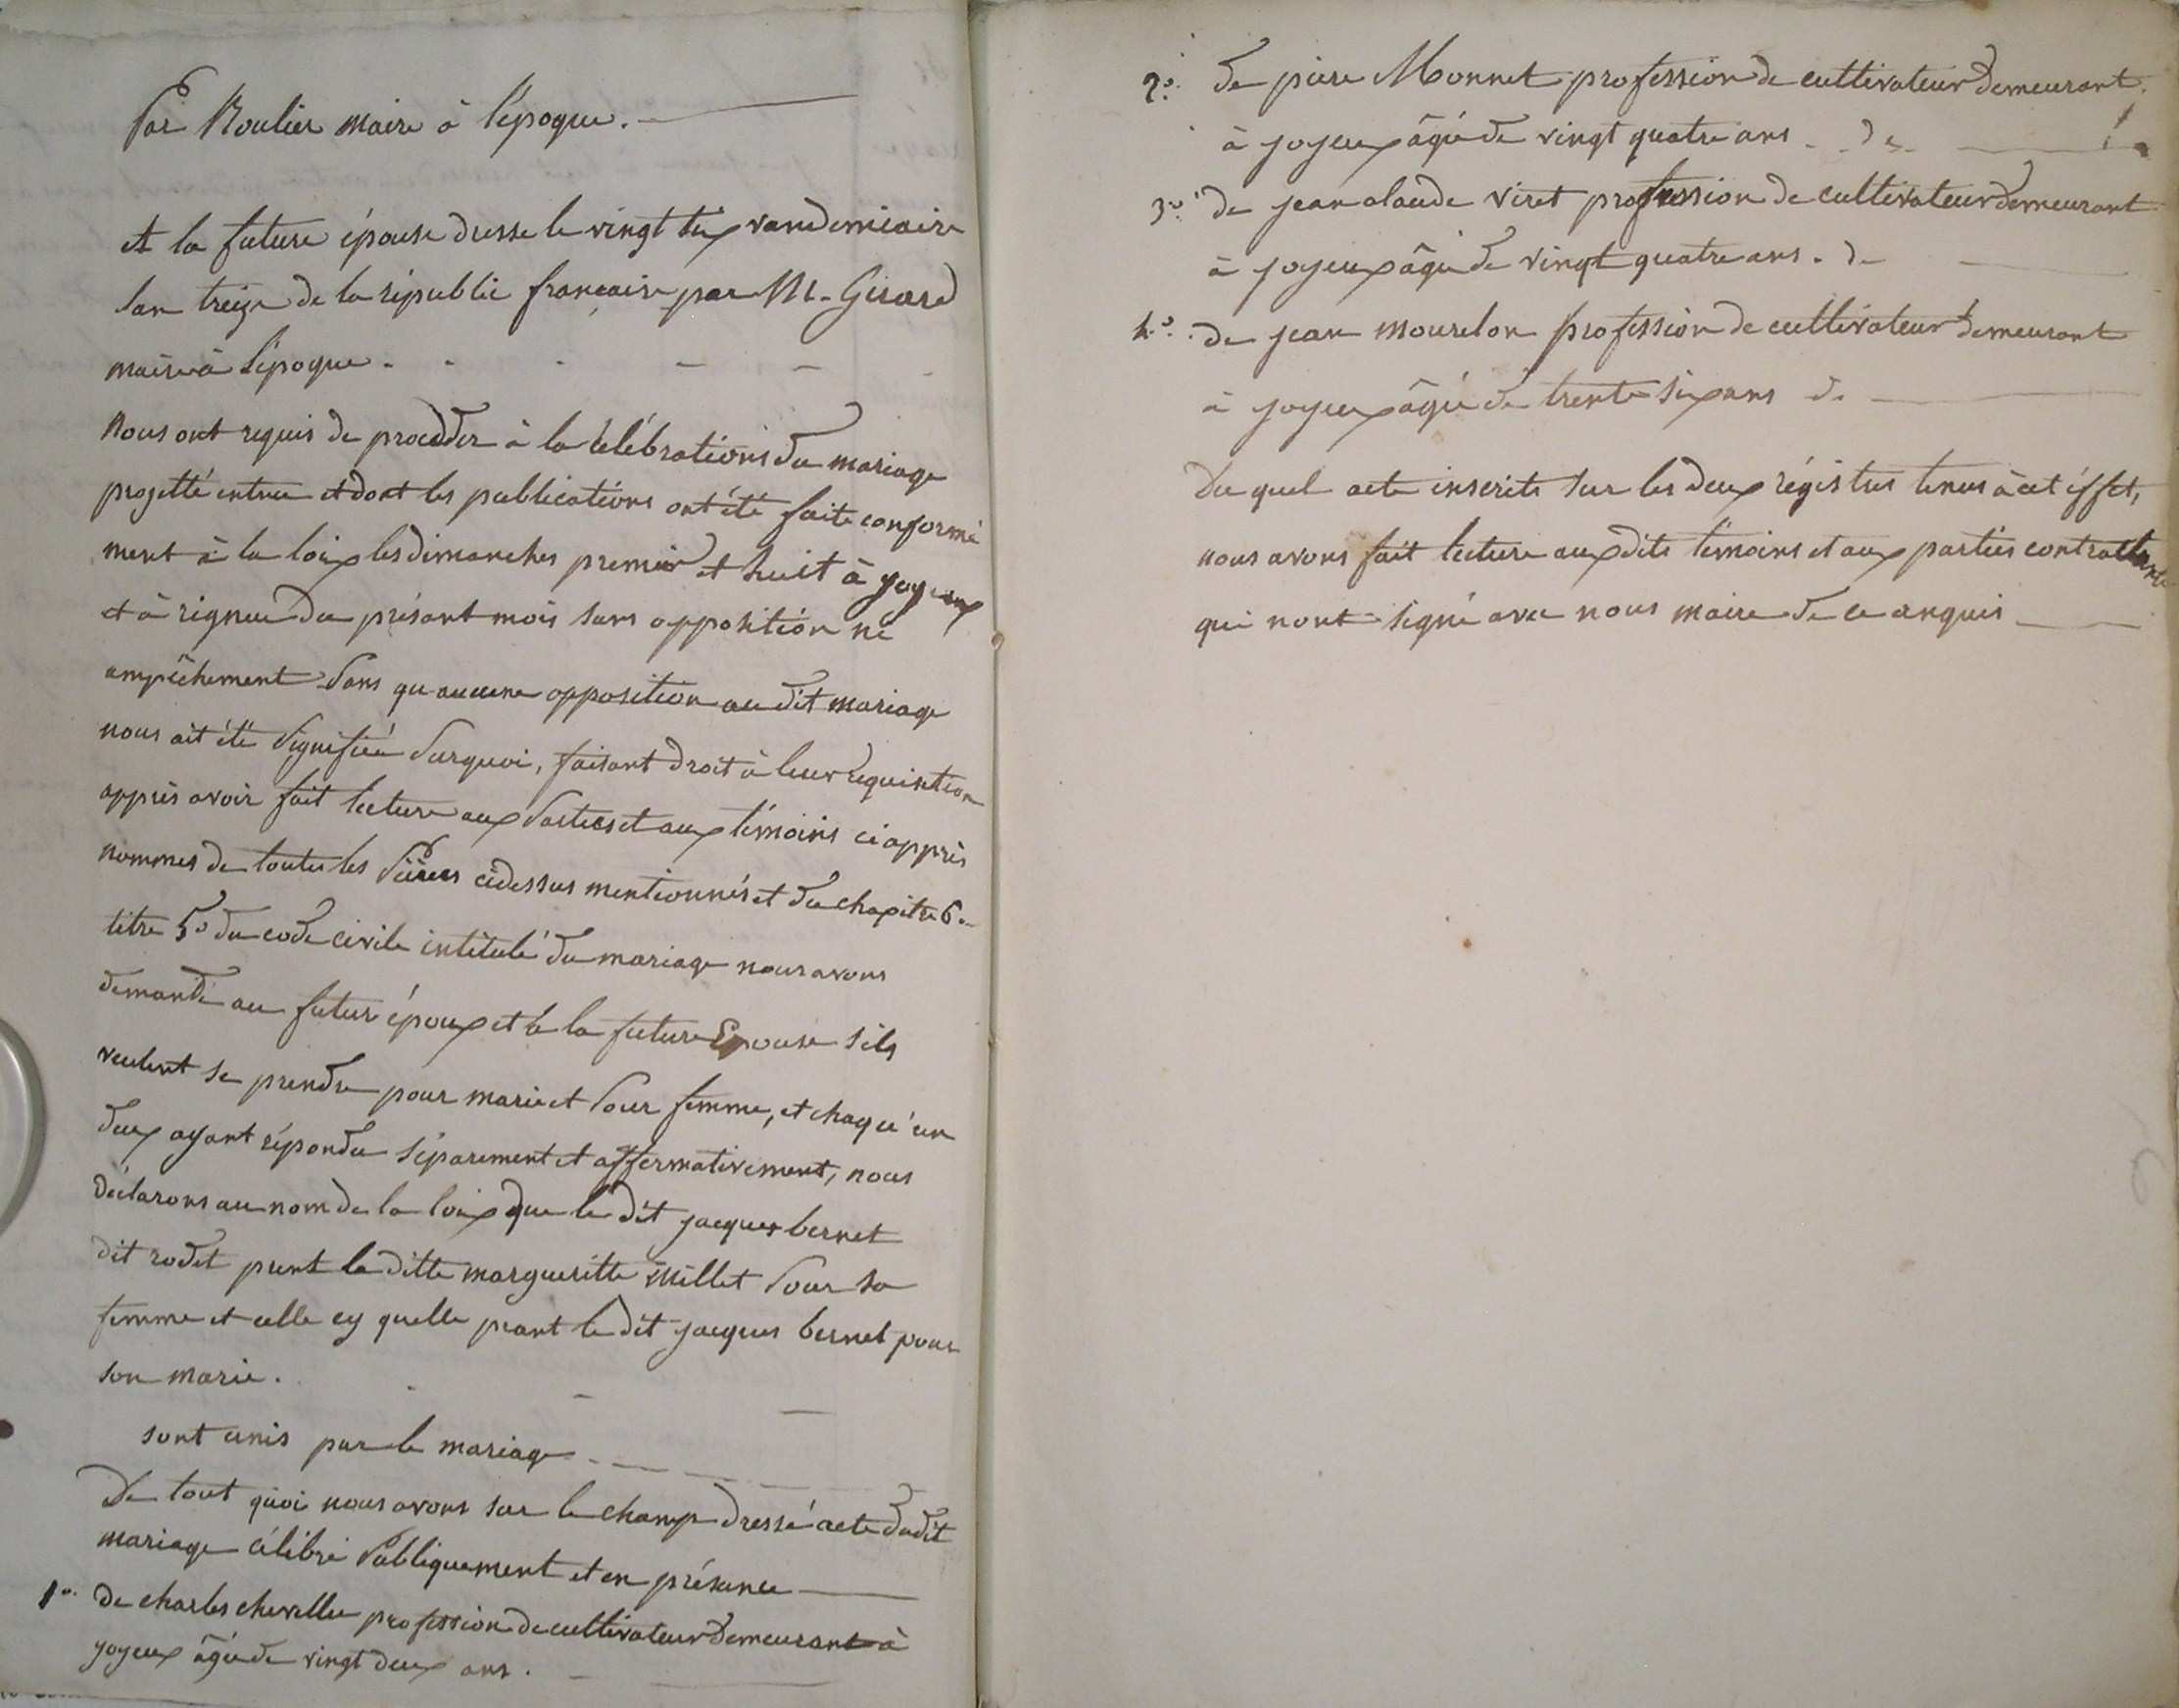 Par Roulier maire à l'époque.
et la future épouse dresse le vingt six vandemiaire
lan treize de la républic française par M. Girard
maire à l'époque.
Nous ont requis de procedder à la célébrations du mariage
projetté entreu et dont les publications ont été faite conformé
ment à la loix les dimanches premier et huit à joyeux
et à rigneu du présant mois sans opposition ne
ampêchement Sans qu-aucune opposition audit mariage
nous ait été Signifieé Surquoi, faisant droit à leur requisition
apprés avoir fait lecture aux Parties et aux témoins ci apprès
nommes de toutes les Pièces cidessus mentionnés et du chapitre 6.
titre 5º du code civile intitulé du mariage nous avons
demandé au futur époux et à la future Epouse s'ils
veulent se prendre pour marie et Pour femme, et chaqu'un
deux ayant répondu séparement et affermativement, nous
déclarons au nom de la loix que le dit jacques bernet
dit rodet prent la ditte margueritte millet Pour sa
femme et celle cy quelle prant le dit jacques bernet pour
son marie.
sont unis par le mariage
De tout quoi nous avons sur le champ dressé acte dudit
mariage célébré Publiquement et en présence
1º. de charles chevellu profession de cultivateur demeurant à
joyeux âgé de vingt deux ans.
2º. de piere Monnet profession de cultivateur demeurant
à joyeux âgé de vingt quatre ans de
3º. de jean claude viret profession de cultivateur demeurant
à joyeux âgé de vingt quatre ans. de
4º. de jean mourelon profession de cultivateur demeurant
à joyeux âgé de trente six ans de
Du quel acte inscrite sur les deux régistres tenus à cet éffet,
nous avons fait lecture auxdits témoins et aux parties contractante
qui nont signé avec nous maire de ce anquis